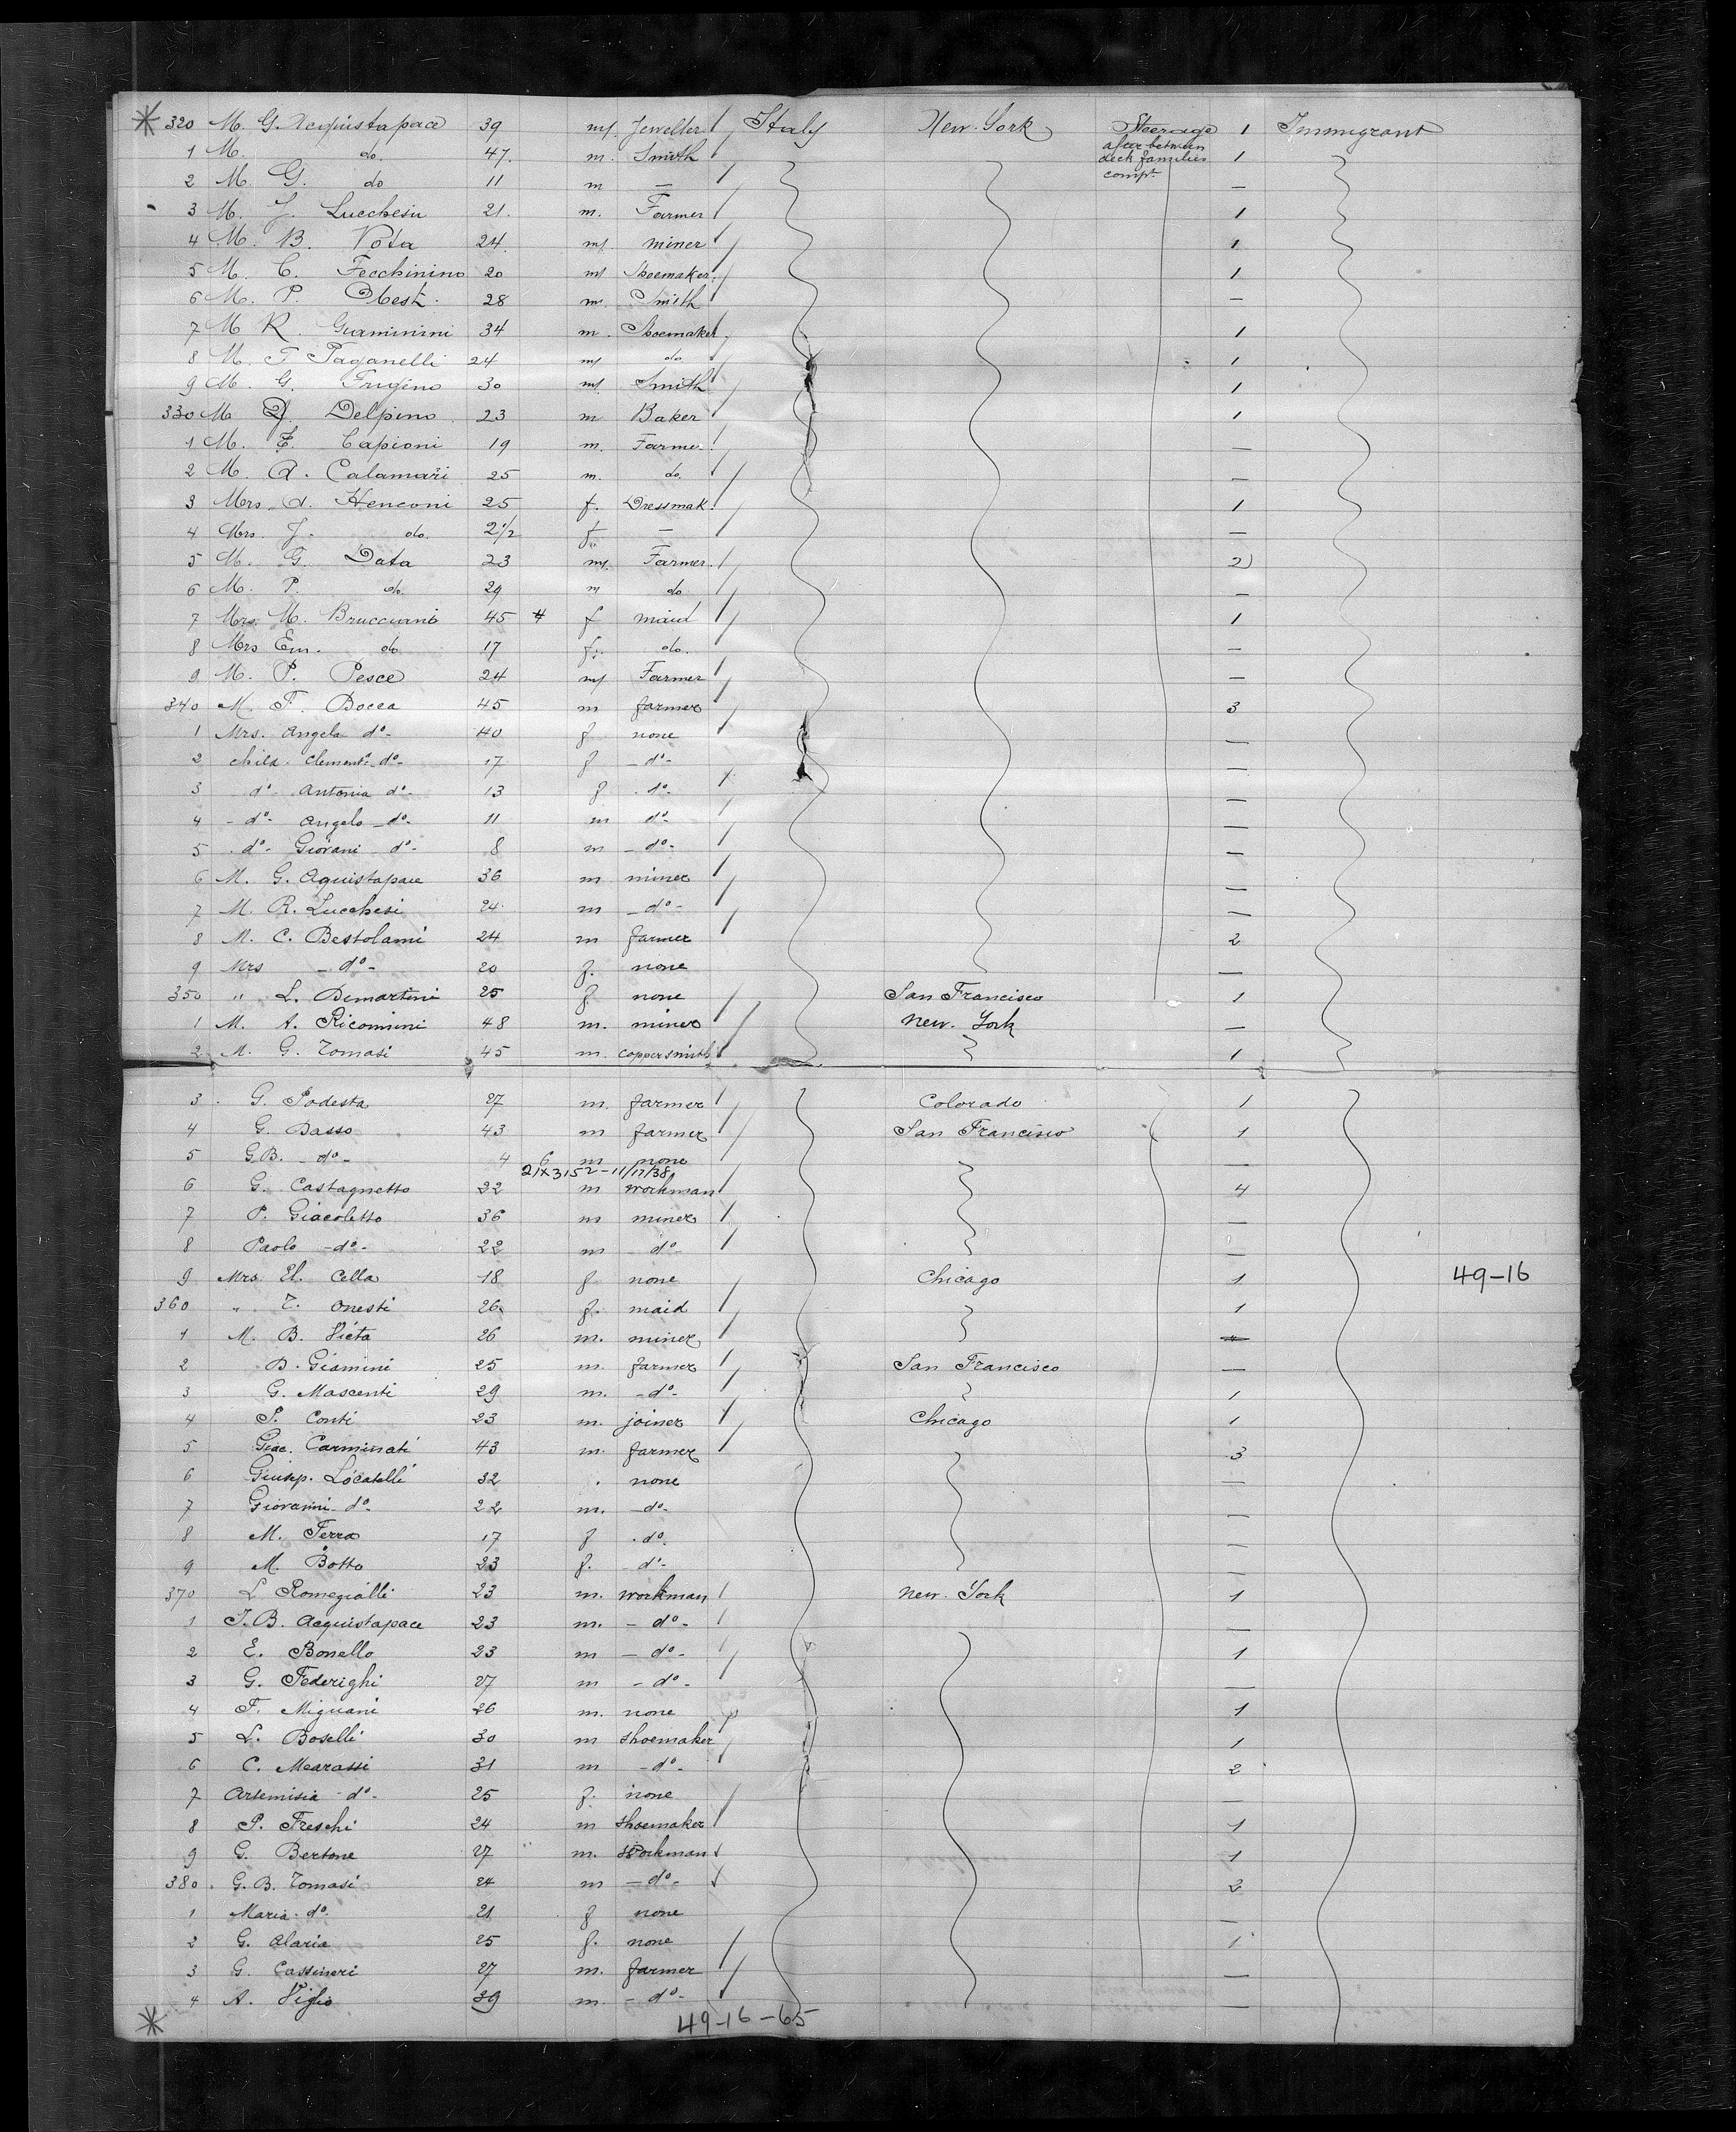 320 M. G. Acquistapace 39 m. Jeweller Italy New-York Steerage 1 Immigrant
after between
1 M. do. 47. m. Smith deck families 1
compt.
2 M. G. do 11 m — —
3 M. J. Lucchesii 21. m. Farmer 1
4 M. B. Vota 24. m. miner 1
5 M. C. Fecchinino 20 m Shoemaker. 1
6 M. P. Obest. 28 m. Smith —
7 M R. Giaminini 34 m. Shoemaker. 1
8 M. F Paganelli 24 m do. 1
9 M. G. Frugino 30 m. Smith 1
330 M J. Delpino 23 m Baker 1
1 M. F. Capioni 19 m. Farmer. —
2 M. A. Calamari 25 m. do. —
3 Mrs. A. Henconi 25 f. Dressmak. 1
4 Mrs. J. do. 2 1/2 f. — —
5 M. G. Data 23 m. Farmer. 2
6 M. P. do. 29 m do —
7 Mrs. M. Brucciani 45 f maid 1
8 Mrs Em. do 17 f. do. —
9 M. P. Pesce 24 m Farmer —
340 M. F. Bocca 45 m farmer 3
1 Mrs. Angela do- 40 f none —
2 child. Clementa do- 17 f - do- —
3 do- Antonia do- 13 f . do- —
4 - do- Angelo - do- 11 m do- —
5 . do- Giovani do- 8 m - do- —
6 M. G. Aquistapace 36 m miner —
7 M. R. Lucchesi 24 m - do - —
8 M. C. Bestolami 24 m farmer 2
9 Mrs - do - 20 f. none —
350 " L. Demartini 25 f none San Francisco 1
1 M. A. Ricomini 48 m. miner New. York —
2 M. G. Tomasi 45 m. coppersmith 1
3 . G. Podesta 27 m. farmer Colorado 1
4 G. Basso 43 m farmer San Francisco 1
5 G.B. - do - 4 6 m none —
21x3152-11/17/38
6 G. Castagnetto 22 m workman 4
7 P. Giacoletto 36 m miner —
8 Paolo - do - 22 m do- —
9 Mrs. El. Cella 18 f none Chicago 1 49-16
360 " T. Onesti 26 f. maid 1
1 M. B. Vieta 26 m. miner
2 B. Giamini 25 m. farmer San Francisco —
3 G. Mascenti 29 m. - do- 1
4 P. Conti 23 m. joiner Chicago 1
5 Giac. Carminati 43 m. farmer 3
6 Giusep. Locatelli 32 . none —
7 Giovanni do- 22 m. - do- —
8 M. Ferra 17 f . do- —
9 M. Botto 23 f. - do- —
370 L Romegialli 23 m. workman New. York 1
1 J.B. Acquistapace 23 m. - do - —
2 E. Bonello 23 m - do - 1
3 G. Federighi 27 m - do - —
4 F. Mignani 26 m. none 1
5 L. Boselli 30 m shoemaker 1
6 C. Mearassi 31 m - do - 2
7 Artemisia do- 25 f. none —
8 P. Freschi 24 m shoemaker 1
9 G. Bertone 27 m. Workman 1
380. G.B. Tomasi 24 m - do - 2
1 Maria do. 21 f none —
2 G. Alaria 25 f. none 1
3 G. Cassineri 27 m. farmer —
4 A. Viglio 39 m. - do - —
49-16-65